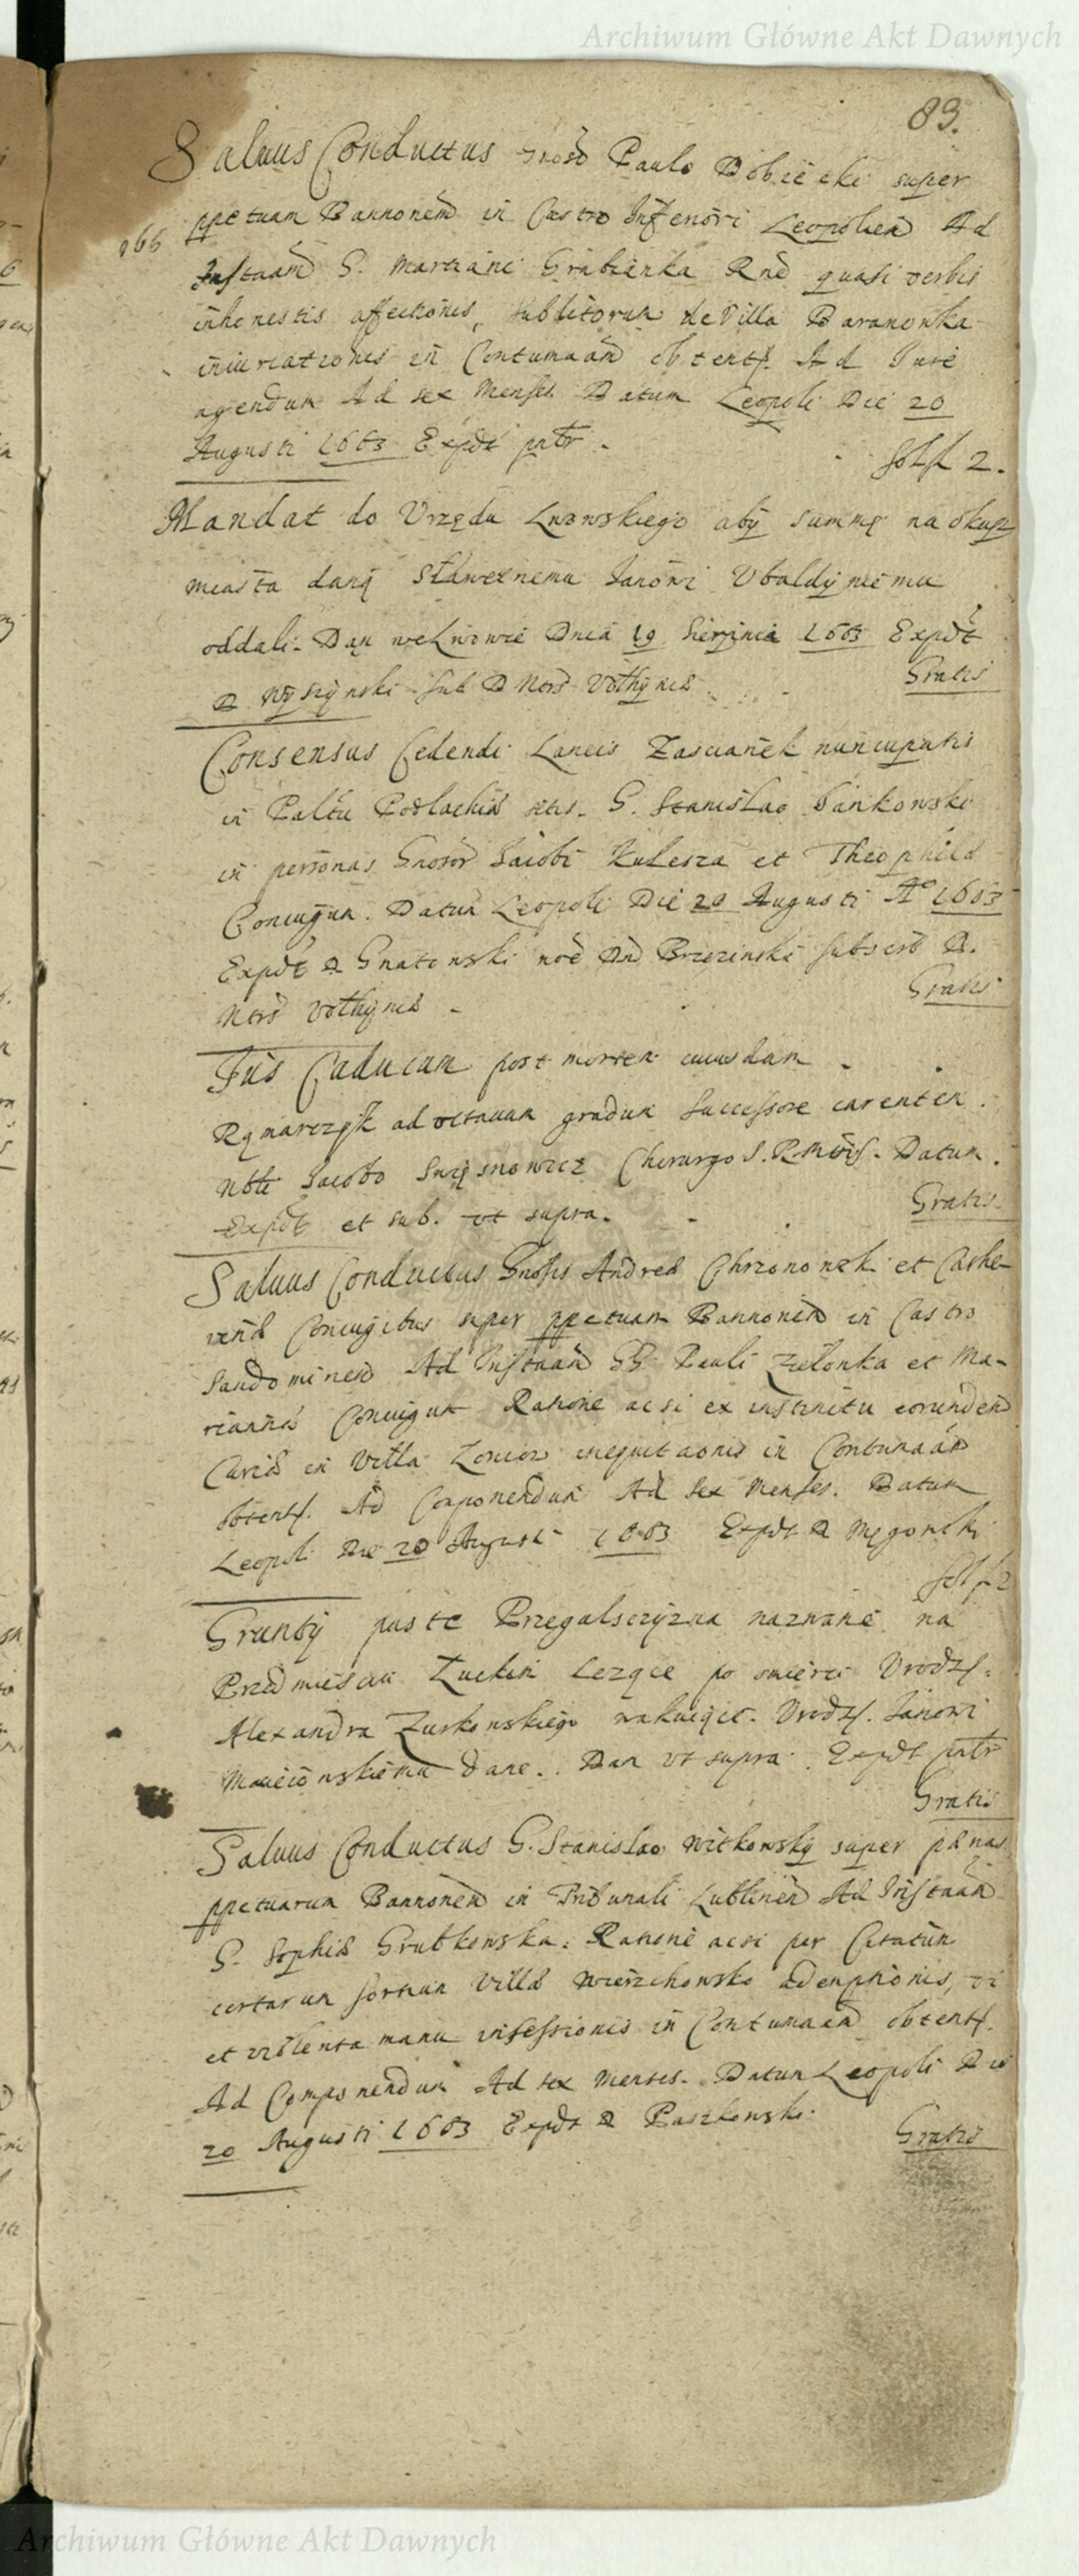 Archiwum Główne Akt Dawnych
83.
Saluus Conductus Gnoso Paulo Dobiecki super
ppetuam Bannonem in Castro Inferiori Leopolien Ad
Instaam G. Martiani Grabianka Rne quasi verbis
inhonestis affectionis, subditorum de Villa Baranowka
iniuriationis in Contumaam obtent. Ad Iure
agendum Ad sex Menses. Datum Leopoli Die 20
Augusti 1663 Expdt patr.
solt 2.
Mandat do Vrzędu Lwowskiego aby summę na okup
miasta daną Sławetnemu Janowi Vbaldyniemu
oddali. Dan we Lwowie Dnia 19 Sierpnia 1663 Expdt
D Wyszynski sub D Ntris Volhyniae
Gratis
Consensus Cedendi Laneis Zascianek nuncupatis
in Paltu Podlachiae sitis. G. Stanislao Jankowski
in personas Gnosor Jacobi Kulesza et Theophilae
Coniugum. Datum Leopoli Die 20 Augusti Ao 1663
Expdt D Gnatowski noe Dni Brzezinski subscrb D.
Ntris Volhyniae
Gratis
Ius Caducum post mortem cuiusdam
Rymarczyk ad octauum gradum Successore carentem.
Nbli Jacobo Chirurgo S. R. Mtis. Datum.
Expdt et sub. vt supra.
Gratis
Saluus Conductus Gnosis Andreae Chrzonowski et Cathe-
rinae Coniugibus super ppetuam Bannonem in Castro
Sandomirien Ad Instaam GG Pauli Zielonka et Ma-
riannae Coniugum Ratione acsi ex instinctu eorundem
Curiae in Villa inequitaonis in Contumaam
obtent. Ad Componendum Ad sex Menses. Datum
Leopoli Die 20 Augusti 1663 Expdt D Męgonski
solt 2
Grunty puste Przegalsczyzna nazwane na
Przedmiesciu Zuckim Lezące po smierci Vrodz.
Alexandra Zurkowskiego wakuiące. Vrodz. Janowi
Macieiowskiemu dane. Dan vt supra. Expdt patr
Gratis
Saluus Conductus G. Stanislao Witkowsky super paenas
ppetuarum Bannonem in Tribunali Lublinen Ad Instaam
G. Sophiae Grubkowska. Ratione acsi per Citatum
certarum sortium Villae Wierzchowsko ademptionis, vi
et violenta manu insessionis in Contumaam obtent.
Ad Componendum Ad sex Menses. Datum Leopoli Die
20 Augusti 1663 Expdt D Paszkowski.
Gratis
Archiwum Główne Akt Dawnych